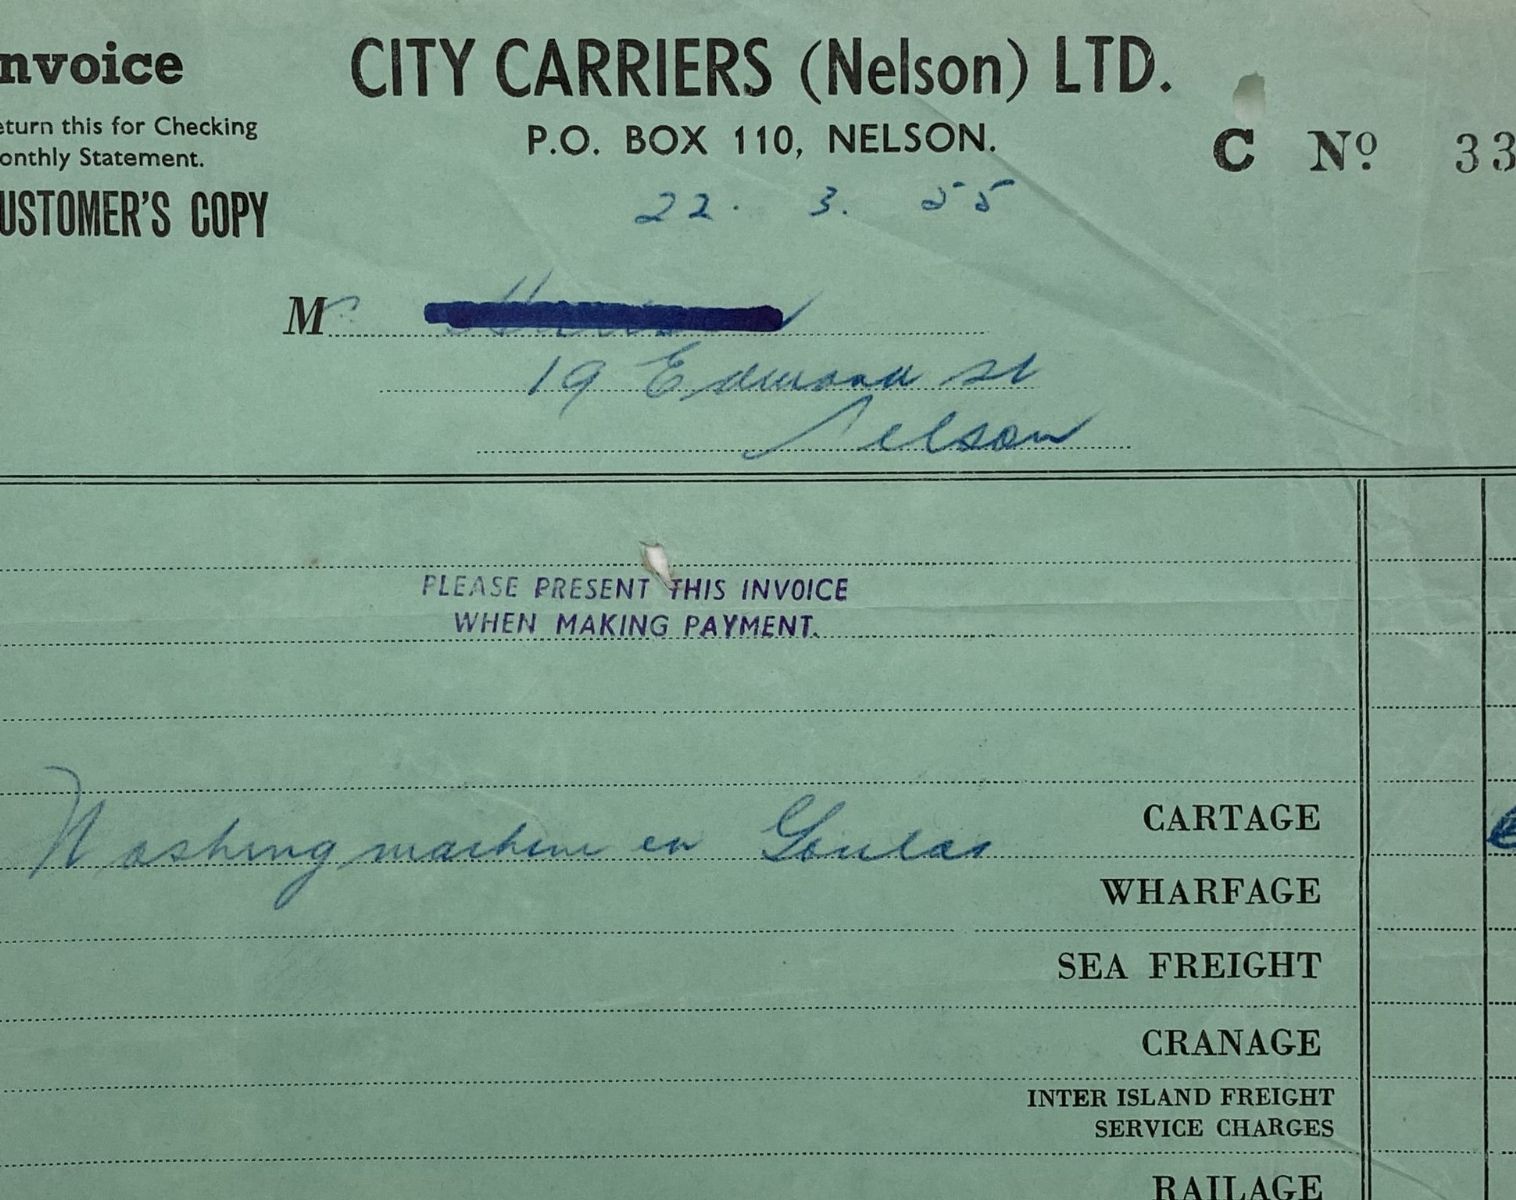 nvoice
CITY CARRIERS (Nelson) LTD.
eturn this for Checking
onthly Statement.
P.O. BOX 110, NELSON.
C Nº 33
USTOMER'S COPY
22. 3. 55
Mr
19 Edmond St
Nelson
PLEASE PRESENT THIS INVOICE
WHEN MAKING PAYMENT.
Washing machine ex
CARTAGE
WHARFAGE
SEA FREIGHT
CRANAGE
INTER ISLAND FREIGHT
SERVICE CHARGES
RAILAGE